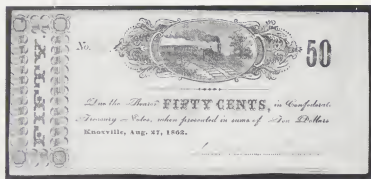 FIFTY
No. 50
Due the Bearer FIFTY CENTS, in Confederate
Treasury Notes, when presented in sums of Ten Dollars
Knoxville, Aug. 27, 1862.